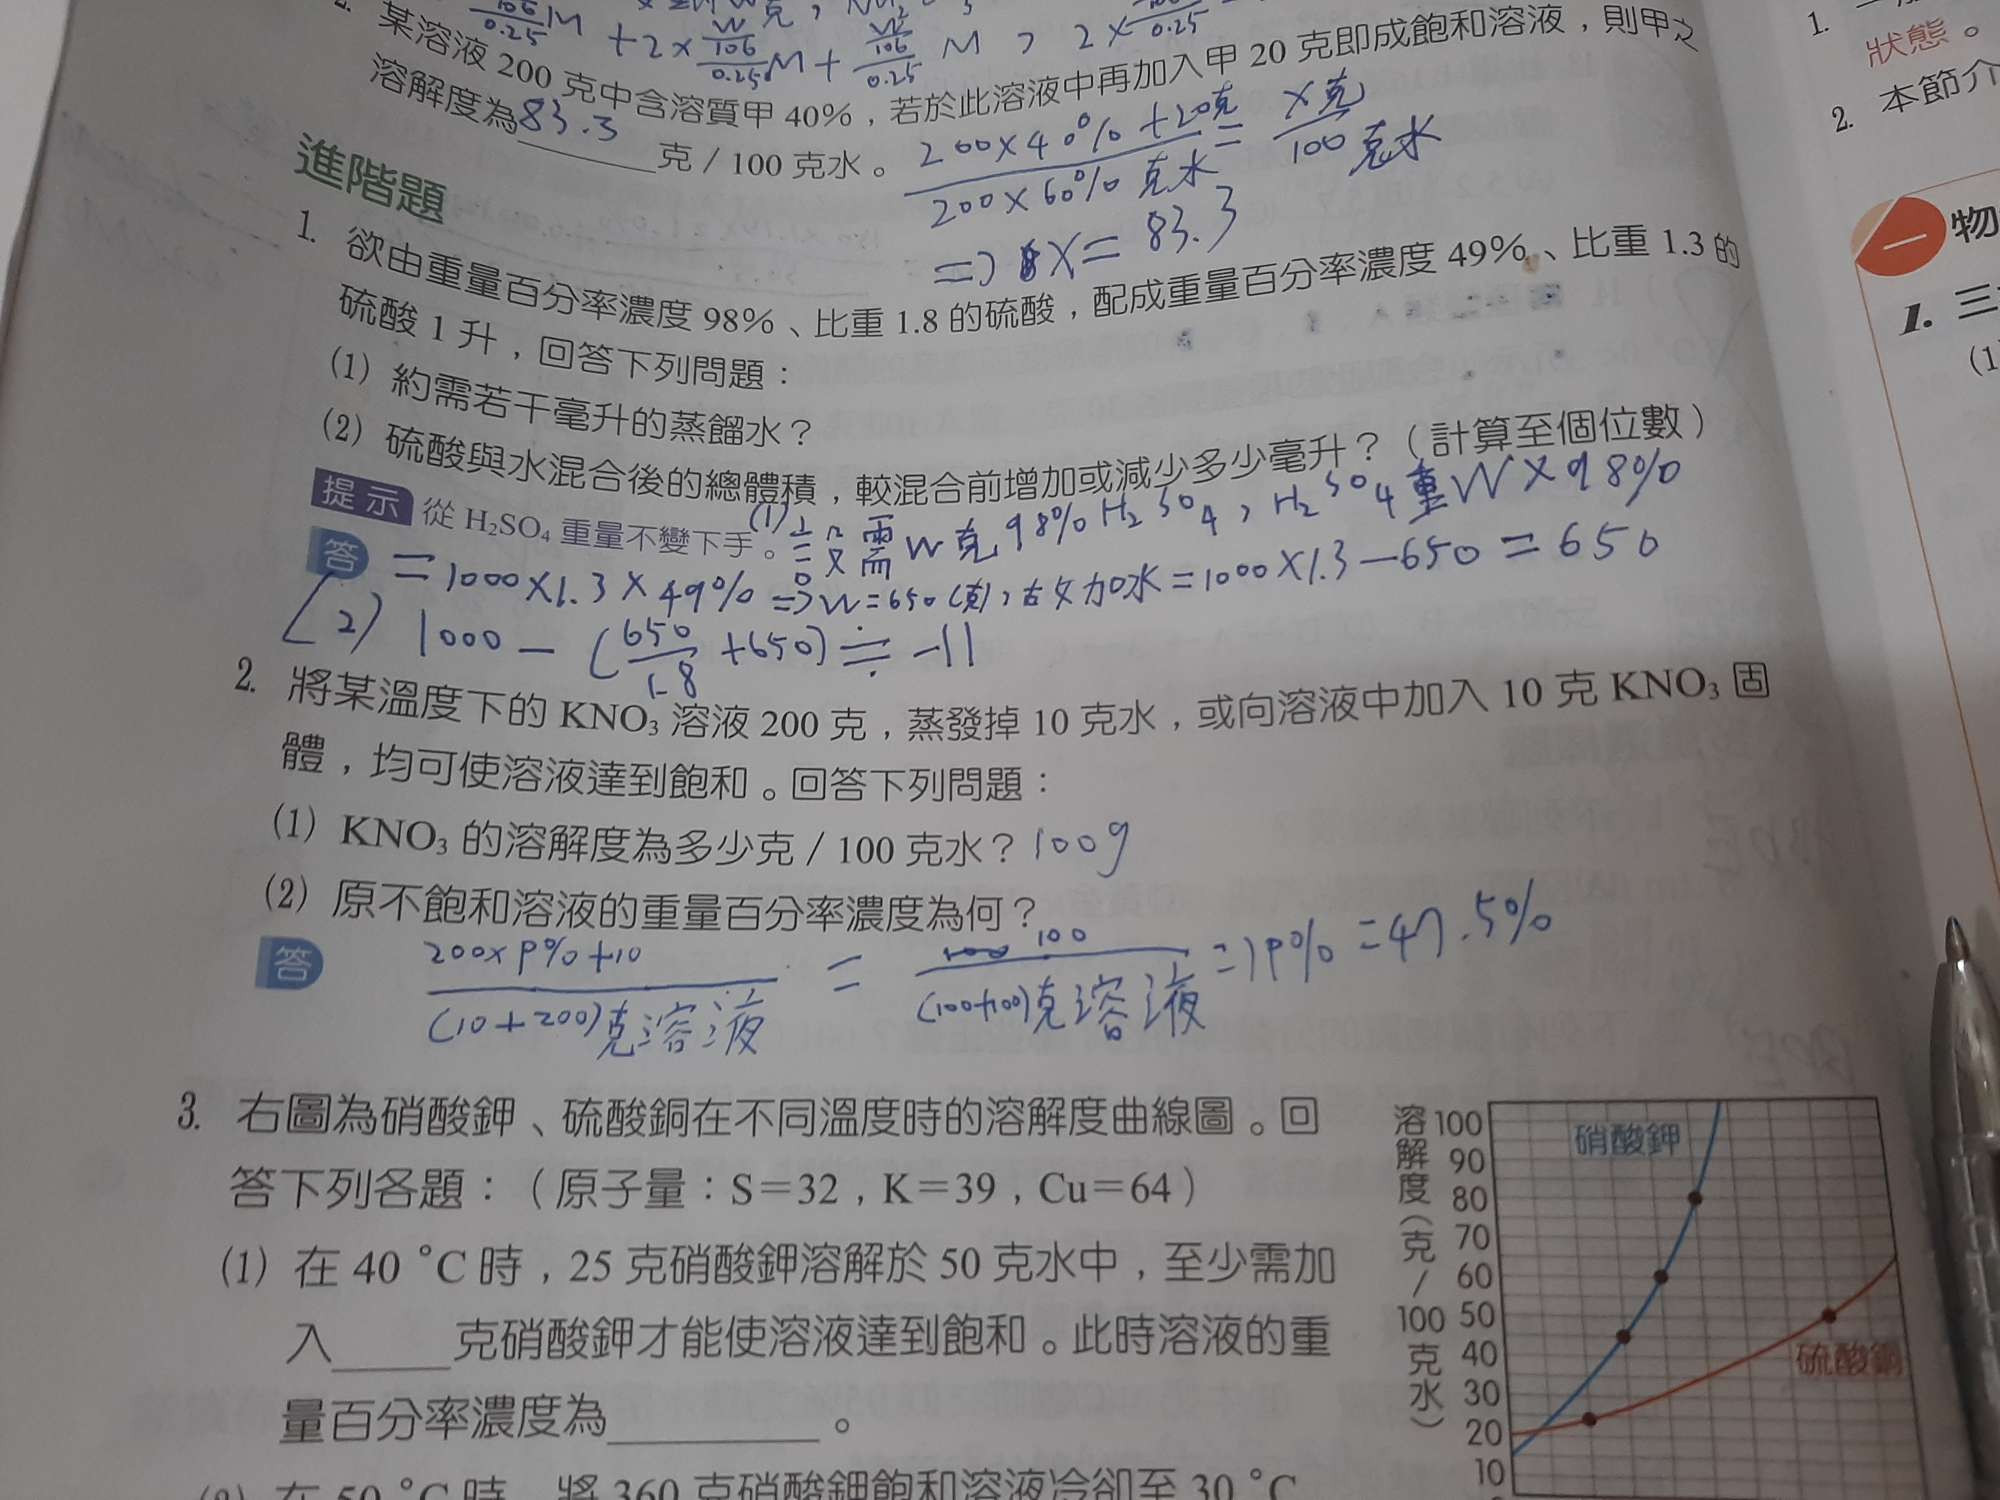 某溶液 200 克中含溶質甲 40%，若於此溶液中再加入甲 20 克即成飽和溶液，則甲之
溶解度為83.3克／100 克水。
200×40%+20克 = X克
200×60%克水 100克水
=> X = 83.3
進階題
1. 欲由重量百分率濃度 98%、比重 1.8 的硫酸，配成重量百分率濃度 49%、比重 1.3 的
硫酸 1 升，回答下列問題：
(1) 約需若干毫升的蒸餾水？
(2) 硫酸與水混合後的總體積，較混合前增加或減少多少毫升？（計算至個位數）
提示 從 H₂SO₄ 重量不變下手。
(1) 設需W克98% H2SO4, H2SO4重W×98%
答 =1000×1.3×49% => W=650(克), 故加水=1000×1.3-650=650
(2) 1000-(650/1.8+650)≒-11
2. 將某溫度下的 KNO₃ 溶液 200 克，蒸發掉 10 克水，或向溶液中加入 10 克 KNO₃ 固
體，均可使溶液達到飽和。回答下列問題：
(1) KNO₃ 的溶解度為多少克／100 克水？100g
(2) 原不飽和溶液的重量百分率濃度為何？
答 200×P%+10 = 100 => P%=47.5%
(10+200)克溶液 (100+100)克溶液
3. 右圖為硝酸鉀、硫酸銅在不同溫度時的溶解度曲線圖。回
答下列各題：（原子量：S＝32，K＝39，Cu＝64）
(1) 在 40 °C 時，25 克硝酸鉀溶解於 50 克水中，至少需加
入____克硝酸鉀才能使溶液達到飽和。此時溶液的重
量百分率濃度為________。
在 50 °C 時，將 360 克硝酸鉀飽和溶液冷卻至 30 °C
溶解度（克／100克水）
100
90
80
70
60
50
40
30
20
10
硝酸鉀
硫酸銅
1.
狀態。
2. 本節介
一 物
1. 三
(1)